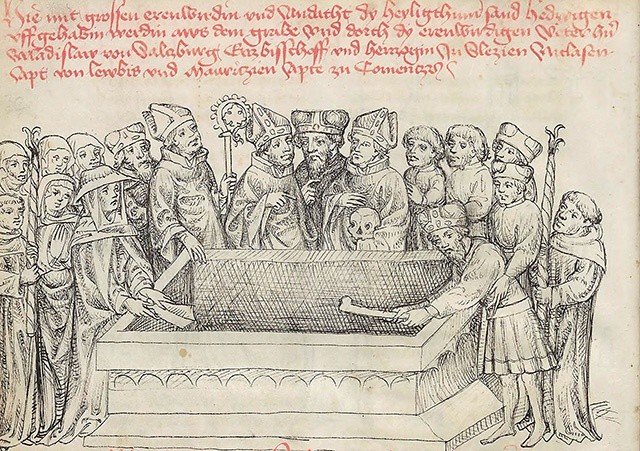 Hie mit grossen erenwirdin und Andacht dy heyligthum sand hedwigen
uff gehabin werdin aws dem grabe und dorch dy erenwirdigen veter hern
waladislaw von Salzburg Ercbisschoff und herzogin Jn Slezien Niclasen
Apt von lewbis und Mawritzien Apte zu Comentz